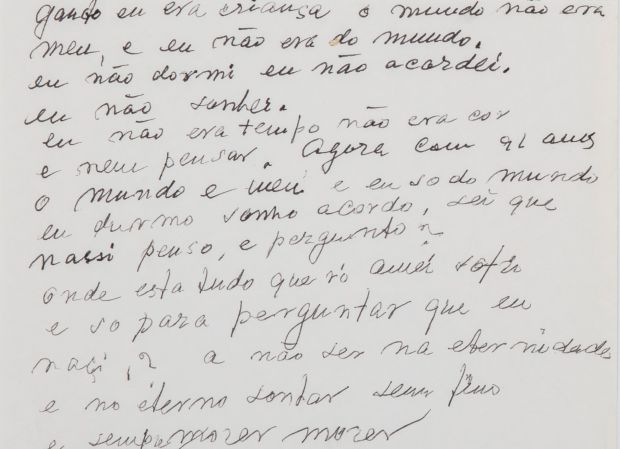 gando eu era criança o mundo não era
meu, e eu não era do mundo.
eu não dormi eu não acordei.
eu não sonhei.
eu não era tempo não era cor
e nem pensar. Agora com 91 anos
o mundo e meu e eu so do mundo
eu durmo sonho acordo, sei que
nassi penso, e pergunto?
onde esta tudo que vi amei sofri
e so para perguntar que eu
naçi,? a não ser na eternidades
e no eterno sonhar sem fino
e morer morer